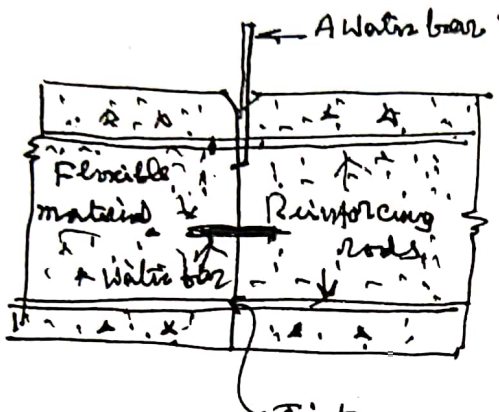 A Water bar
Flexible
material
Reinforcing
rods
A water bar
Joint